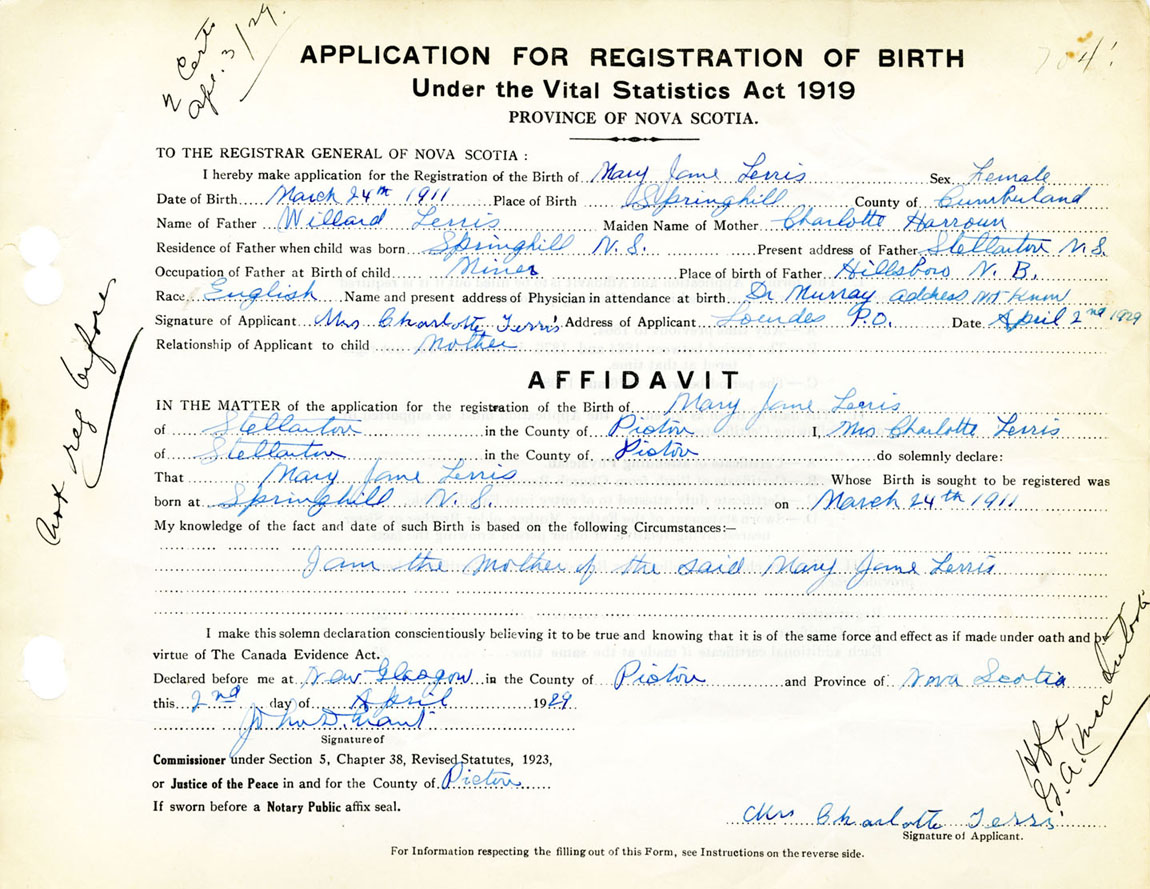 2 Certs
Apl. 3/29.
704
APPLICATION FOR REGISTRATION OF BIRTH
Under the Vital Statistics Act 1919
PROVINCE OF NOVA SCOTIA.
TO THE REGISTRAR GENERAL OF NOVA SCOTIA :
I hereby make application for the Registration of the Birth of Mary Jane Terris Sex Female
Date of Birth March 24th 1911 Place of Birth Springhill County of Cumberland
Name of Father Willard Terris Maiden Name of Mother Charlotte Harroun
Residence of Father when child was born Springhill N.S. Present address of Father Stellarton N.S.
Occupation of Father at Birth of child Miner Place of birth of Father Hillsboro N.B.
Race English Name and present address of Physician in attendance at birth Dr Murray address not known
Signature of Applicant Mrs Charlotte Terris Address of Applicant Lourdes P.O. Date April 2nd 1929
Relationship of Applicant to child Mother
Not reg before
AFFIDAVIT
IN THE MATTER of the application for the registration of the Birth of Mary Jane Terris
of Stellarton in the County of Pictou I, Mrs Charlotte Terris
of Stellarton in the County of Pictou do solemnly declare:
That Mary Jane Terris Whose Birth is sought to be registered was
born at Springhill N.S. on March 24th 1911
My knowledge of the fact and date of such Birth is based on the following Circumstances:—
I am the mother of the said Mary Jane Terris
I make this solemn declaration conscientiously believing it to be true and knowing that it is of the same force and effect as if made under oath and by
virtue of The Canada Evidence Act.
Declared before me at New Glasgow in the County of Pictou and Province of Nova Scotia
this 2nd day of April 1929
John D. Grant
Signature of
Commissioner under Section 5, Chapter 38, Revised Statutes, 1923,
or Justice of the Peace in and for the County of Pictou
If sworn before a Notary Public affix seal.
Hfx
G.A. Mac
Mrs Charlotte Terris
Signature of Applicant.
For Information respecting the filling out of this Form, see Instructions on the reverse side.